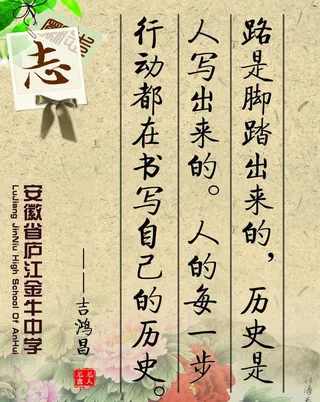 路是脚踏出来的，历史是
人写出来的。人的每一步
行动都在书写自己的历史。
——吉鸿昌
志
安徽省庐江金牛中学
LuJiang JinNiu High School Of AnHui
名人
名言